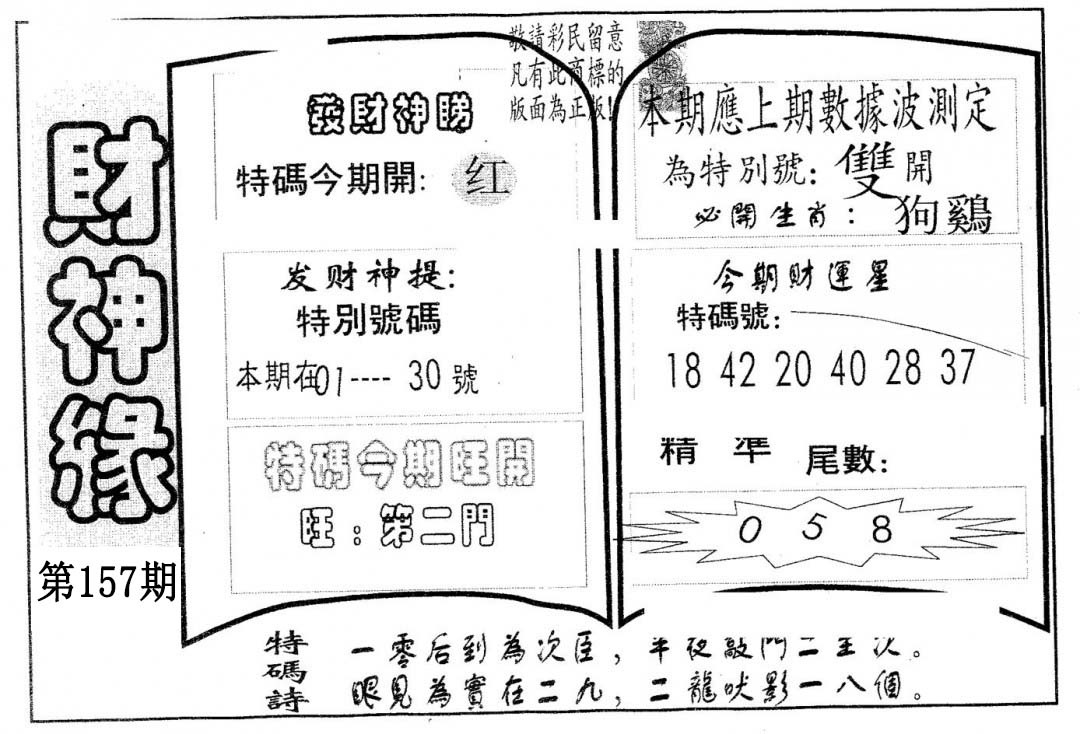 財神緣
第157期
敬請彩民留意
凡有此商標的
版面為正版!
發財神睇
特碼今期開: 红
发财神提:
特別號碼
本期在01----30號
特碼今期旺開
旺:第二門
本期應上期數據波測定
為特別號:雙開
必開生肖:狗鷄
今期財運星
特碼號:
18 42 20 40 28 37
精準 尾數:
0 5 8
特碼詩
一零后到為次臣,半夜敲門二主次。
眼見為實在二九,二龍吠影一八個。